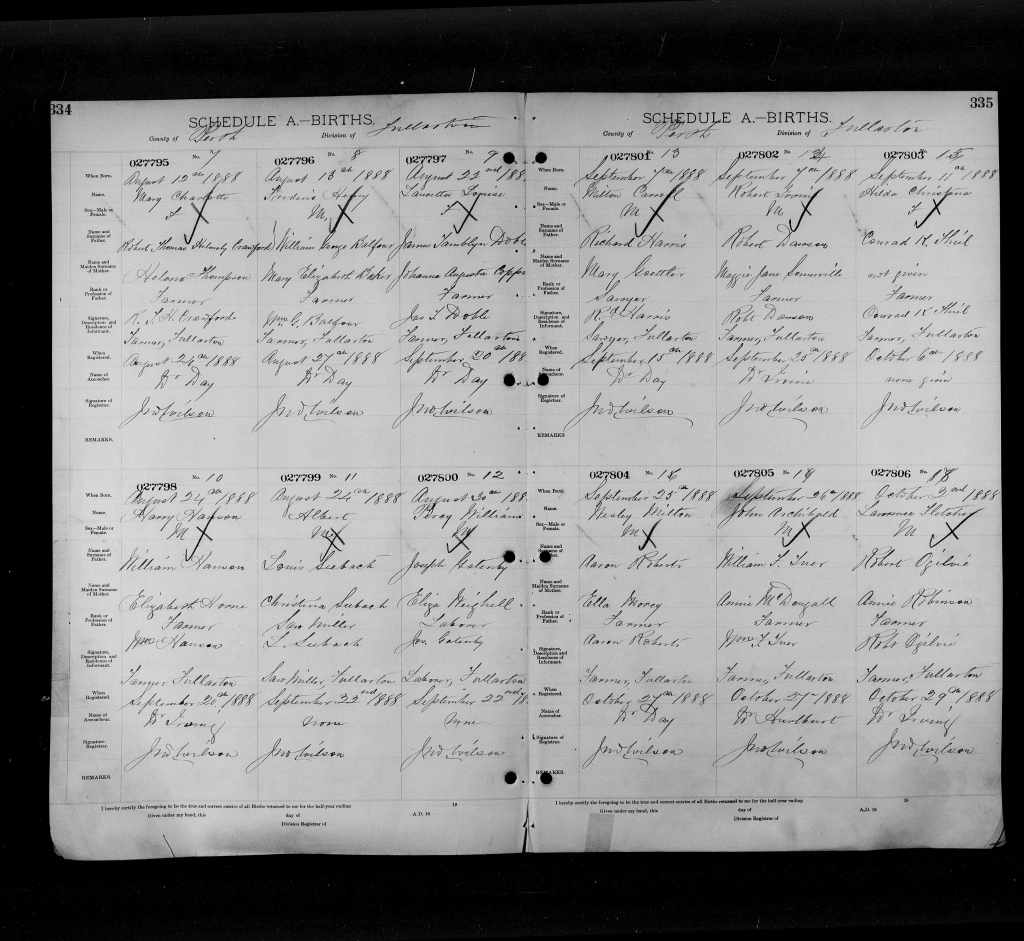 334
SCHEDULE A.—BIRTHS.
County of Perth Division of Fullarton
027795 No. 7 027796 No. 8 027797 No. 9
When Born. August 12th 1888 August 13th 1888 August 23rd 188
Name. Mary Charlotte Henry Louise
Sex—Male or Female. F M F
Name and Surname of Father. Robert Thomas Crawford William George Balfour James Tamblyn Doble
Name and Maiden Surname of Mother. Helena Thompson Mary Elizabeth Johanna Augusta
Rank or Profession of Father. Farmer Farmer Farmer
Signature, Description and Residence of Informant. R. T. H. Crawford Wm G. Balfour Jas T. Doble
Farmer, Fullarton Farmer, Fullarton Farmer, Fullarton
When Registered. August 24th 1888 August 27th 1888 September 20th 188
Name of Accoucheur. Dr Day Dr Day Dr Day
Signature of Registrar. Jno Wilson Jno Wilson Jno Wilson
REMARKS.
027798 No. 10 027799 No. 11 027800 No. 12
When Born. August 24th 1888 August 24th 1888 August 30th 188
Name. Harry Hanson Albert Percy William
Sex—Male or Female. M M M
Name and Surname of Father. William Hanson Louis Seebach Joseph Gatenby
Name and Maiden Surname of Mother. Elizabeth Horne Christina Seebach Eliza Weighell
Rank or Profession of Father. Farmer Saw Miller Laborer
Signature, Description and Residence of Informant. Wm Hanson L. Seebach Jos. Gatenby
Farmer Fullarton Saw Miller, Fullarton Laborer, Fullarton
When Registered. September 20th 1888 September 22nd 1888 September 22nd 18
Name of Accoucheur. Dr Irving none none
Signature Registrar. Jno Wilson Jno Wilson Jno Wilson
REMARKS.
I hereby certify the foregoing to be the true and correct entries of all Births returned to me for the half-year ending 18
Given under my hand, this day of A.D. 18
Division Registrar of
335
SCHEDULE A.—BIRTHS.
County of Perth Division of Fullarton
027801 No. 13 027802 027803
When Born. September 7th 1888 September 7th 1888 September 11th 1888
Name. Milton Robert Irving Hilda Christina
Sex—Male or Female. M M F
Name and Surname of Father. Richard Harris Robert Dawson Conrad K
Name and Maiden Surname of Mother. Mary Maggie Jane Somerville not given
Rank or Profession of Father. Sawyer Farmer Farmer
Signature, Description and Residence of Informant. Rd Harris Robt Dawson Conrad K
Sawyer, Fullarton Farmer, Fullarton Farmer, Fullarton
When Registered. September 15th 1888 September 25th 1888 October 6th 1888
Name of Accoucheur. Dr Day Dr Irvine none given
Signature of Registrar. Jno Wilson Jno Wilson Jno Wilson
REMARKS
027804 027805 027806
When Born. September 25th 1888 September 26th 1888 October 2nd 1888
Name. Wesley Milton John Archibald Fletcher
Sex—Male or Female. M M M
Name and Surname of Father. Aaron Roberts William T. Robert Ogilvie
Name and Maiden Surname of Mother. Ella Annie McDougall Annie Robinson
Rank or Profession of Father. Farmer Farmer Farmer
Signature, Description and Residence of Informant. Aaron Roberts Wm T. Robt Ogilvie
Farmer, Fullarton Farmer, Fullarton Farmer, Fullarton
When Registered. October 27th 1888 October 27th 1888 October 29th 1888
Name of Accoucheur. Dr Day Dr Hurlburt Dr Irving
Signature of Registrar. Jno Wilson Jno Wilson Jno Wilson
REMARKS.
I hereby certify the foregoing to be the true and correct entries of all Births returned to me for the half-year ending 18
Given under my hand, this day of A.D. 18
Division Registrar of